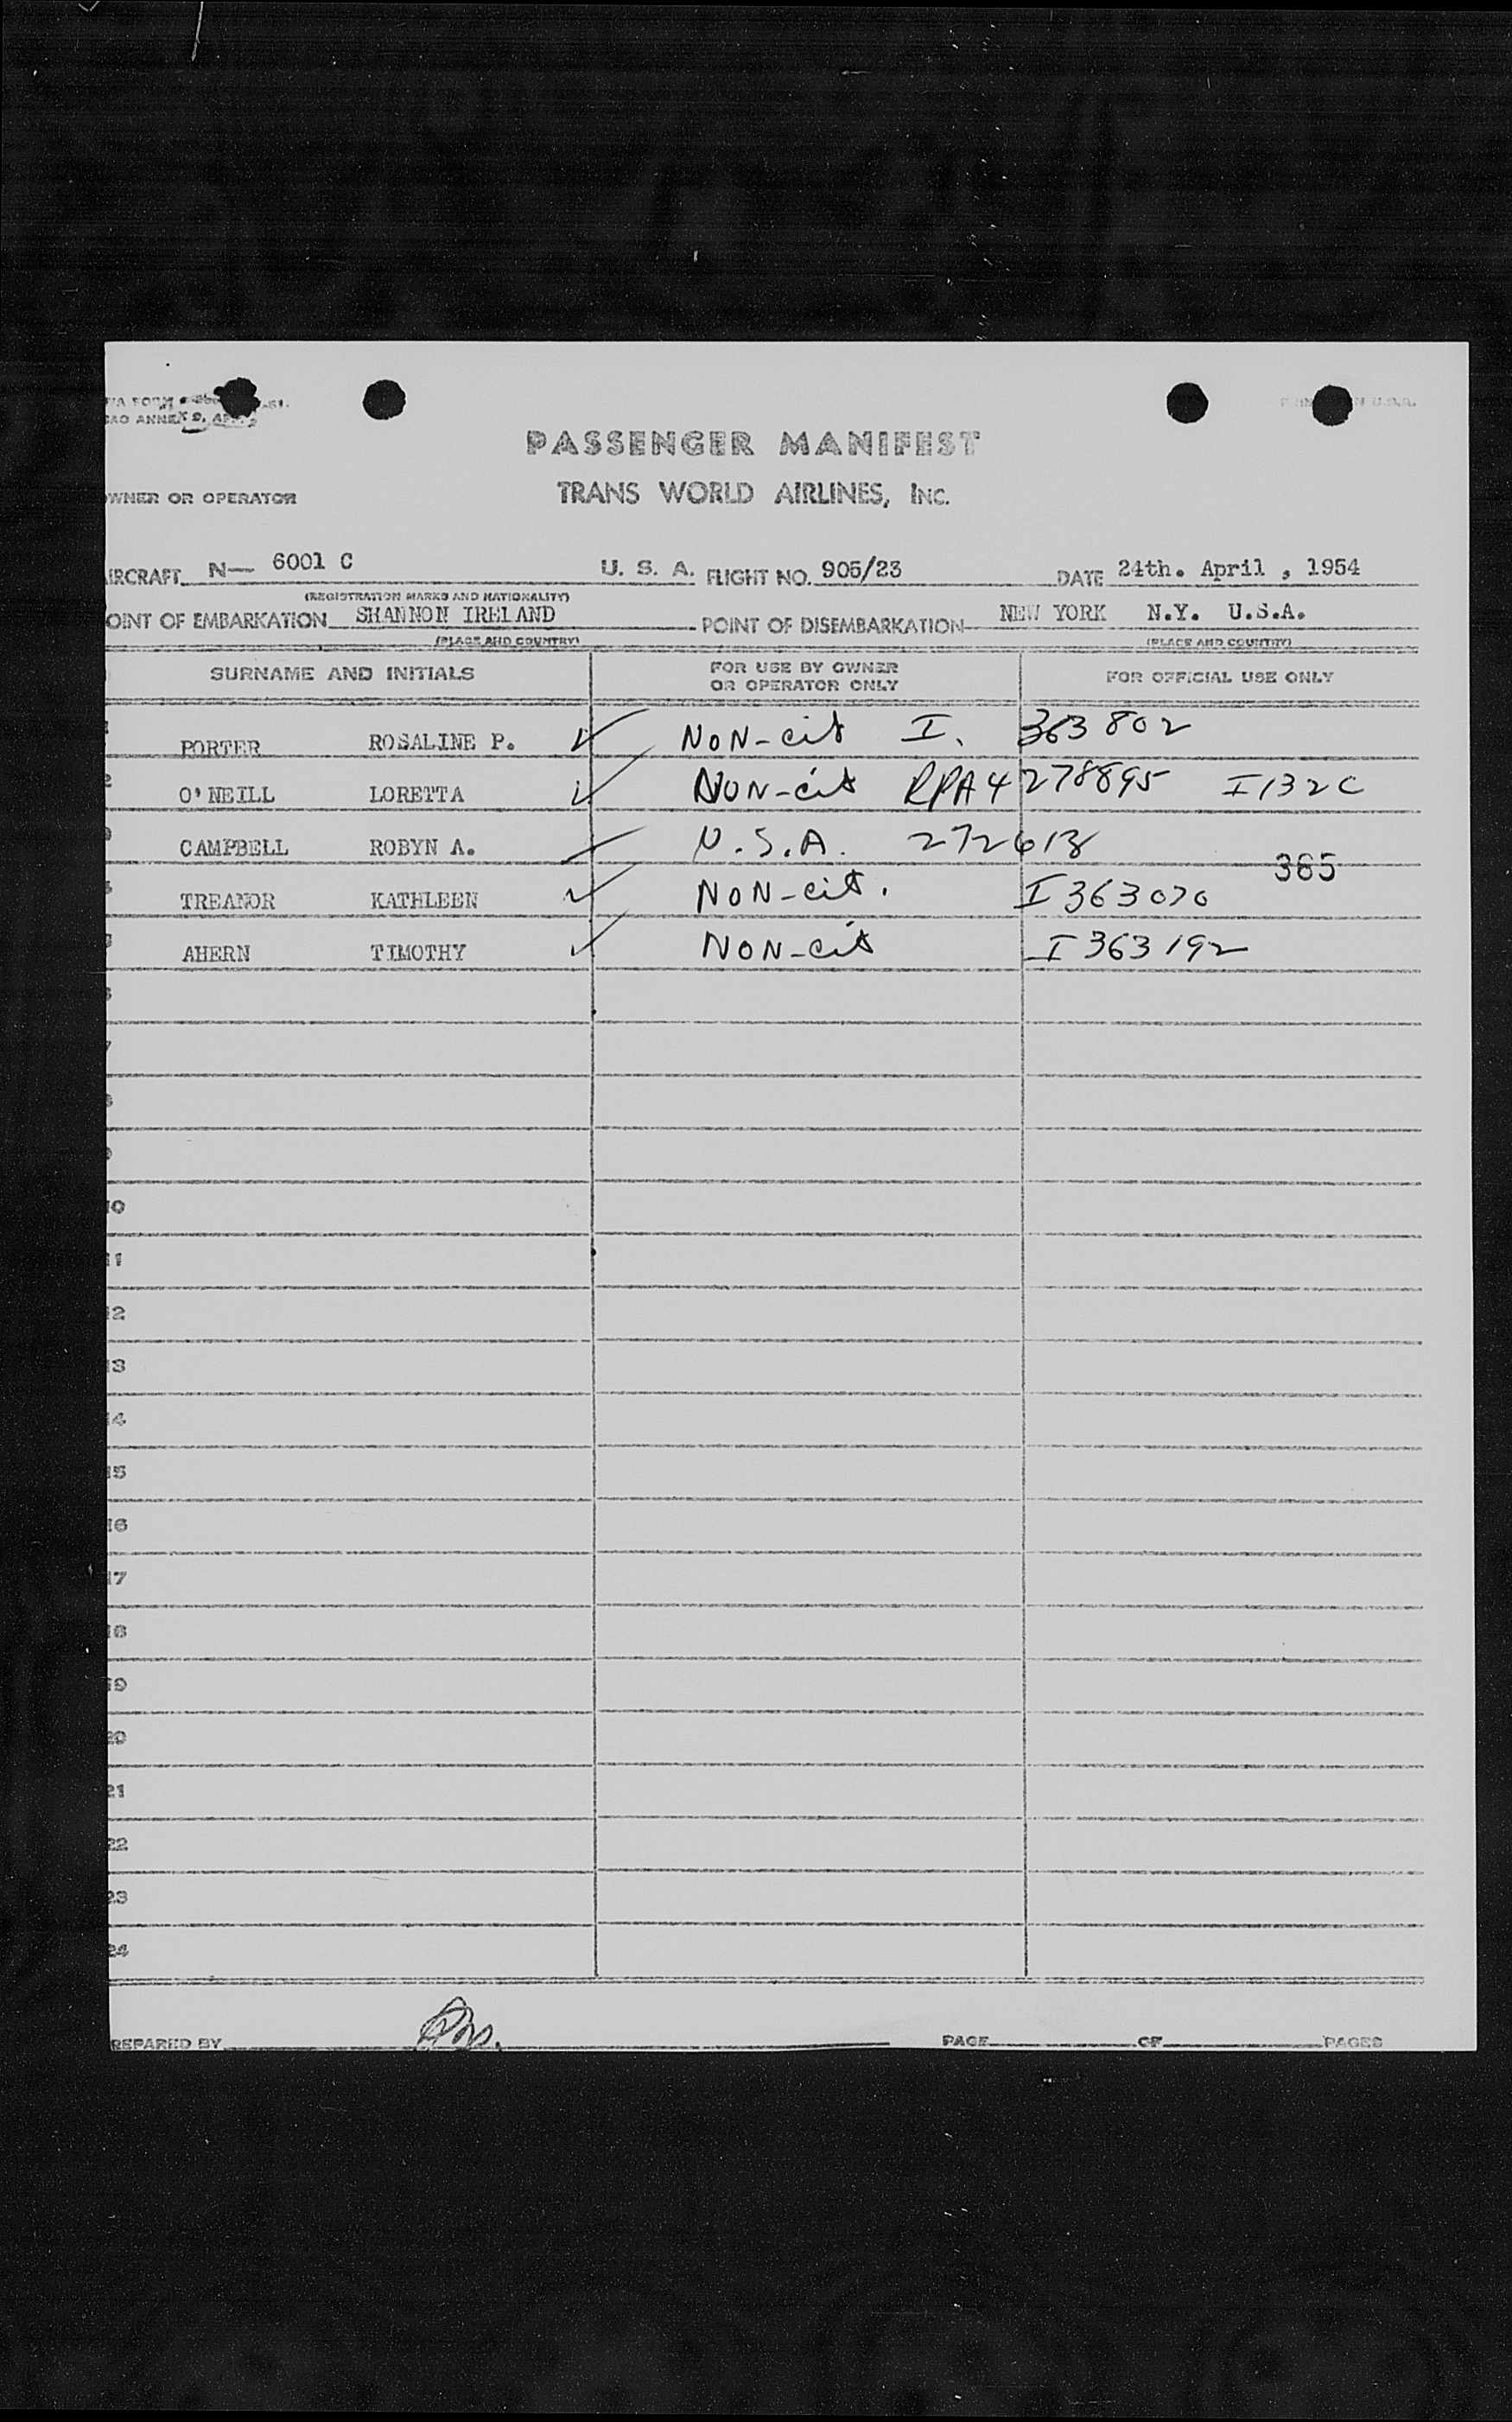 PASSENGER MANIFEST
OWNER OR OPERATOR TRANS WORLD AIRLINES, INC.
AIRCRAFT N— 6001 C U. S. A. FLIGHT NO. 905/23 DATE 24th. April , 1954
(REGISTRATION MARKS AND NATIONALITY)
POINT OF EMBARKATION SHANNON IRELAND POINT OF DISEMBARKATION NEW YORK N.Y. U.S.A.
(PLACE AND COUNTRY) (PLACE AND COUNTRY)
SURNAME AND INITIALS FOR USE BY OWNER OR OPERATOR ONLY FOR OFFICIAL USE ONLY
PORTER ROSALINE P. ✓ NON-cit I. 363802
2 O'NEILL LORETTA ✓ NON-cit RPA 4278895 I132C
CAMPBELL ROBYN A. U.S.A. 272613
365
TREANOR KATHLEEN ✓ NON-cit. I 363070
AHERN TIMOTHY ✓ NON-cit I 363192
10
11
12
13
14
15
16
17
18
19
20
21
22
23
24
PREPARED BY PAGE OF PAGES